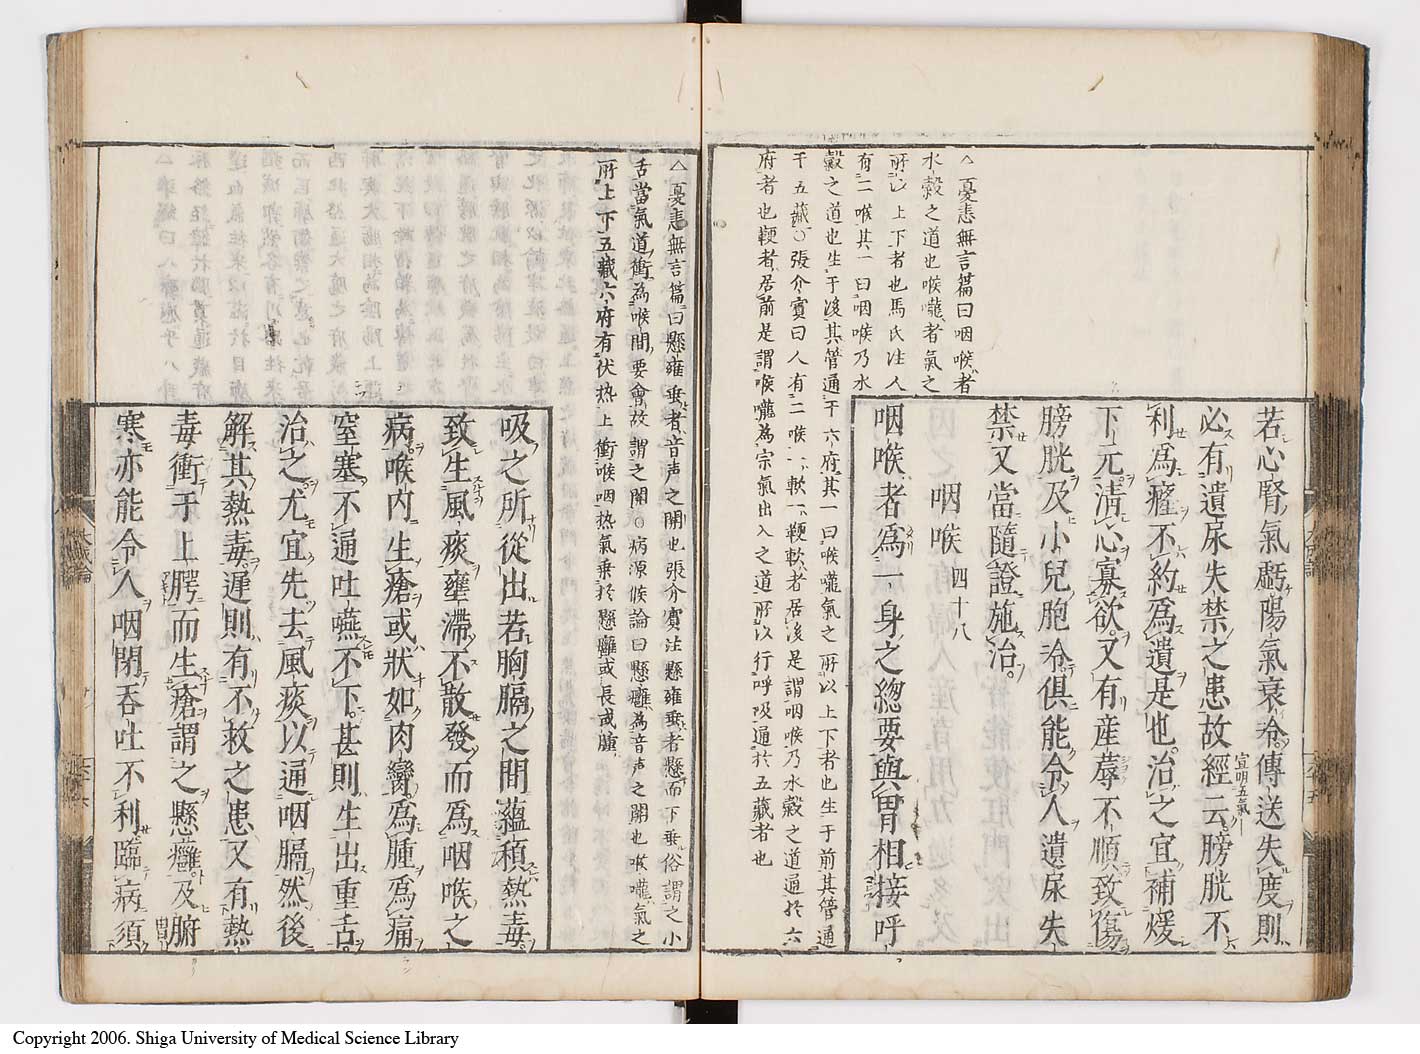 若心腎氣虧陽氣衰冷傳送失度則
必有遺尿失禁之患故經云膀胱不
宣明五氣
利爲癃不約爲遺是也治之宜補煖
下元清心寡欲又有産蓐不順致傷
膀胱及小兒胞冷俱能令人遺尿失
禁又當隨證施治
咽喉 四十八
咽喉者爲一身之總要與胃相接呼
△憂恚無言篇曰咽喉者
水穀之道也喉嚨者氣之
所以上下者也馬氏注人
有二喉其一曰咽喉乃水
穀之道也生于後其管通于六府其一曰喉嚨氣之所以上下者也生于前其管通
于五藏○張介賓曰人有二喉一軟一鞕軟者居後是謂咽喉乃水穀之道通於六
府者也鞕者居前是謂喉嚨爲宗氣出入之道所以行呼吸通於五藏者也
△憂恚無言篇曰懸雍垂者音声之関也張介賓注懸雍垂者懸而下垂俗謂之小
舌當氣道衝為喉間要會故謂之関○病源候論曰懸癰為音声之関也喉嚨氣之
所上下五藏六府有伏热上衝喉咽热氣乗於懸癰或長或腫
吸之所從出若胸膈之間蘊積熱毒
致生風痰壅滯不散發而爲咽喉之
病喉内生瘡或狀如肉臠爲腫爲痛
窒塞不通吐嚥不下甚則生出重舌
治之尤宜先去風痰以通咽膈然後
解其熱毒遲則有不救之患又有熱
毒衝于上腭而生瘡謂之懸癰及腑
寒亦能令人咽閉吞吐不利臨病須
Copyright 2006. Shiga University of Medical Science Library